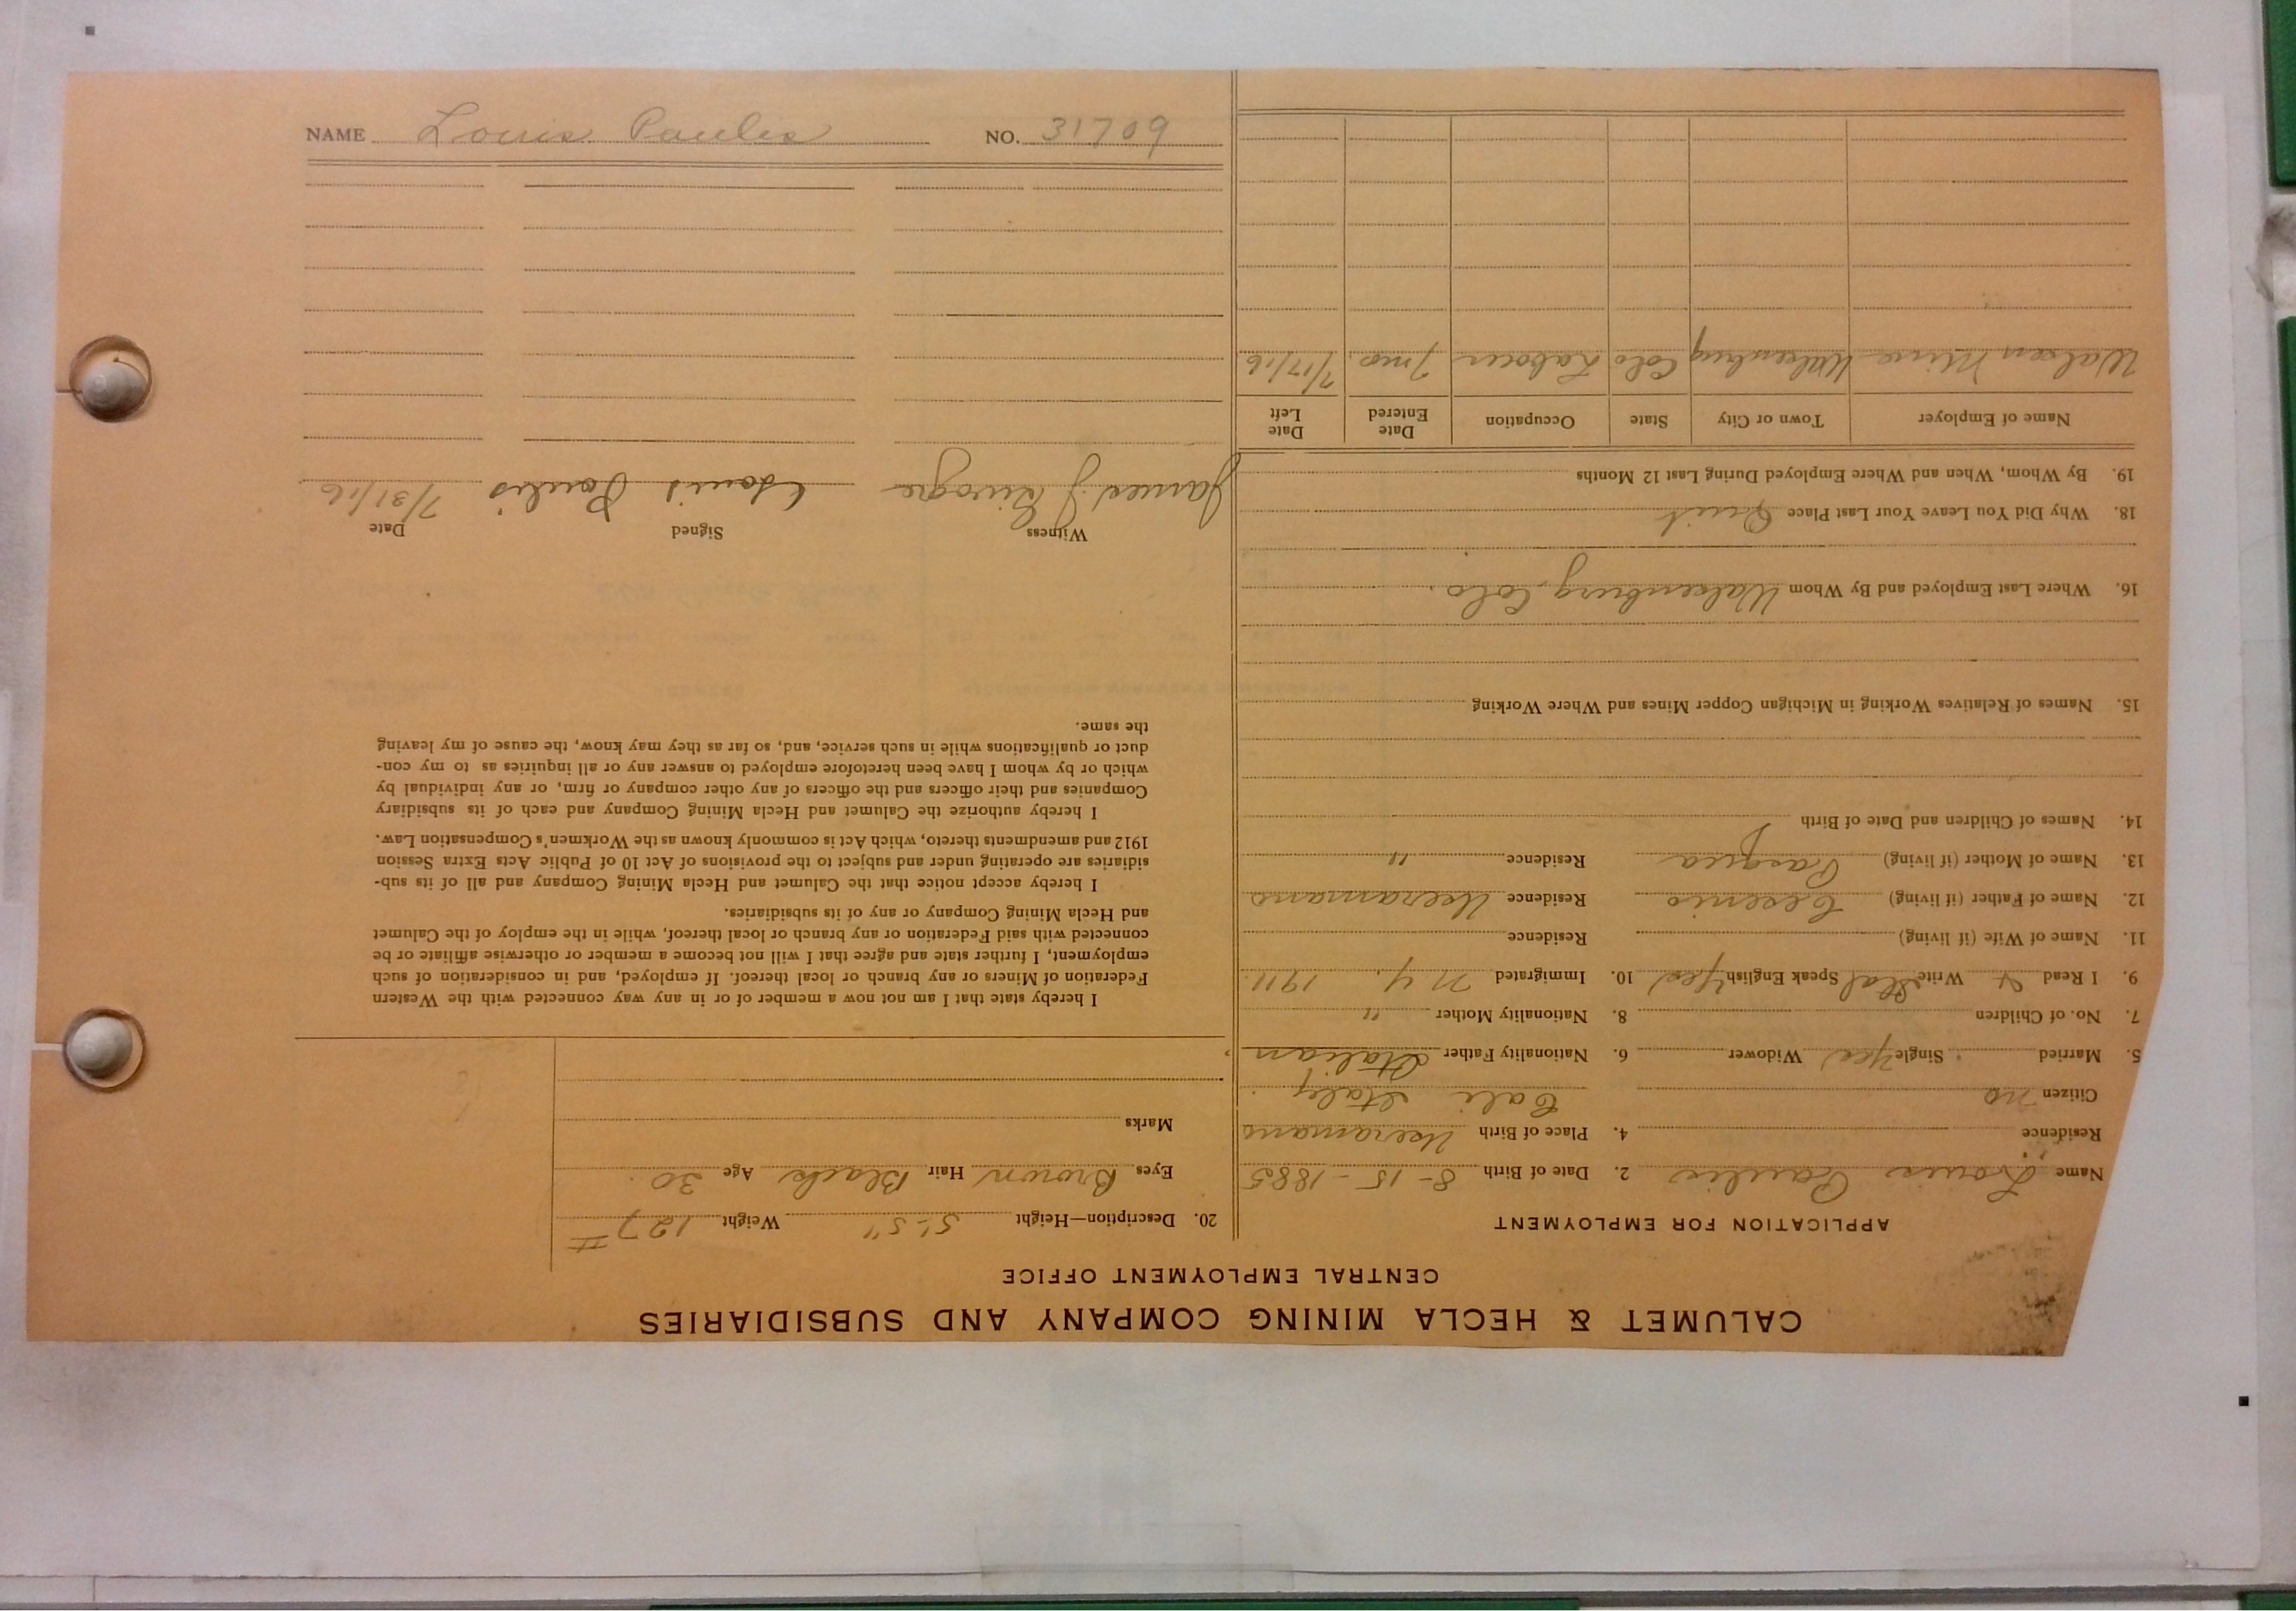 CALUMET & HECLA MINING COMPANY AND SUBSIDIARIES
CENTRAL EMPLOYMENT OFFICE
APPLICATION FOR EMPLOYMENT
Name Louis Paulis 2. Date of Birth 8-15-1885
Residence 4. Place of Birth
Citizen no Italy
5. Married Single Yes Widower 6. Nationality Father Italian
7. No. of Children 8. Nationality Mother "
9. I Read & Write Ital Speak English Yes 10. Immigrated N.Y. 1911.
11. Name of Wife (if living) Residence
12. Name of Father (if living) Residence
13. Name of Mother (if living) Residence "
14. Names of Children and Date of Birth
15. Names of Relatives Working in Michigan Copper Mines and Where Working
16. Where Last Employed and By Whom Walsenburg, Colo.
18. Why Did You Leave Your Last Place Quit
19. By Whom, When and Where Employed During Last 12 Months
Name of Employer Town or City State Occupation Date Entered Date Left
Walsen Mine Walsenburg Colo Laborer 7 mo. 7/17/16
20. Description—Height 5'-5" Weight 127 #
Eyes Brown Hair Black Age 30
Marks
I hereby state that I am not now a member of or in any way connected with the Western
Federation of Miners or any branch or local thereof. If employed, and in consideration of such
employment, I further state and agree that I will not become a member or otherwise affiliate or be
connected with said Federation or any branch or local thereof, while in the employ of the Calumet
and Hecla Mining Company or any of its subsidiaries.
I hereby accept notice that the Calumet and Hecla Mining Company and all of its sub-
sidiaries are operating under and subject to the provisions of Act 10 of Public Acts Extra Session
1912 and amendments thereto, which Act is commonly known as the Workmen's Compensation Law.
I hereby authorize the Calumet and Hecla Mining Company and each of its subsidiary
Companies and their officers and the officers of any other company or firm, or any individual by
which or by whom I have been heretofore employed to answer any or all inquiries as to my con-
duct or qualifications while in such service, and, so far as they may know, the cause of my leaving
the same.
Witness Signed Date
James J Louis Paulis 7/31/16
NAME Louis Paulis NO. 31709